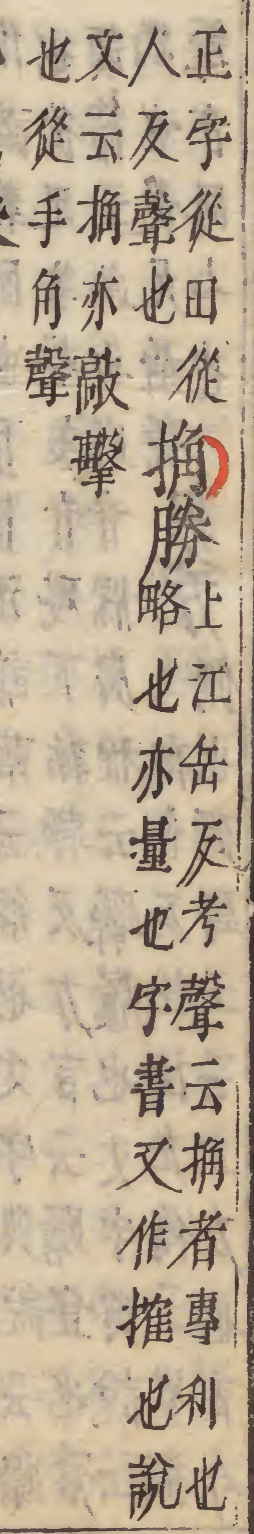 正字從田從
人反聲也
捔勝
上江岳反考聲云捔者專利也
略也亦量也字書又作搉也說
文云捔亦敲擊
也從手角聲